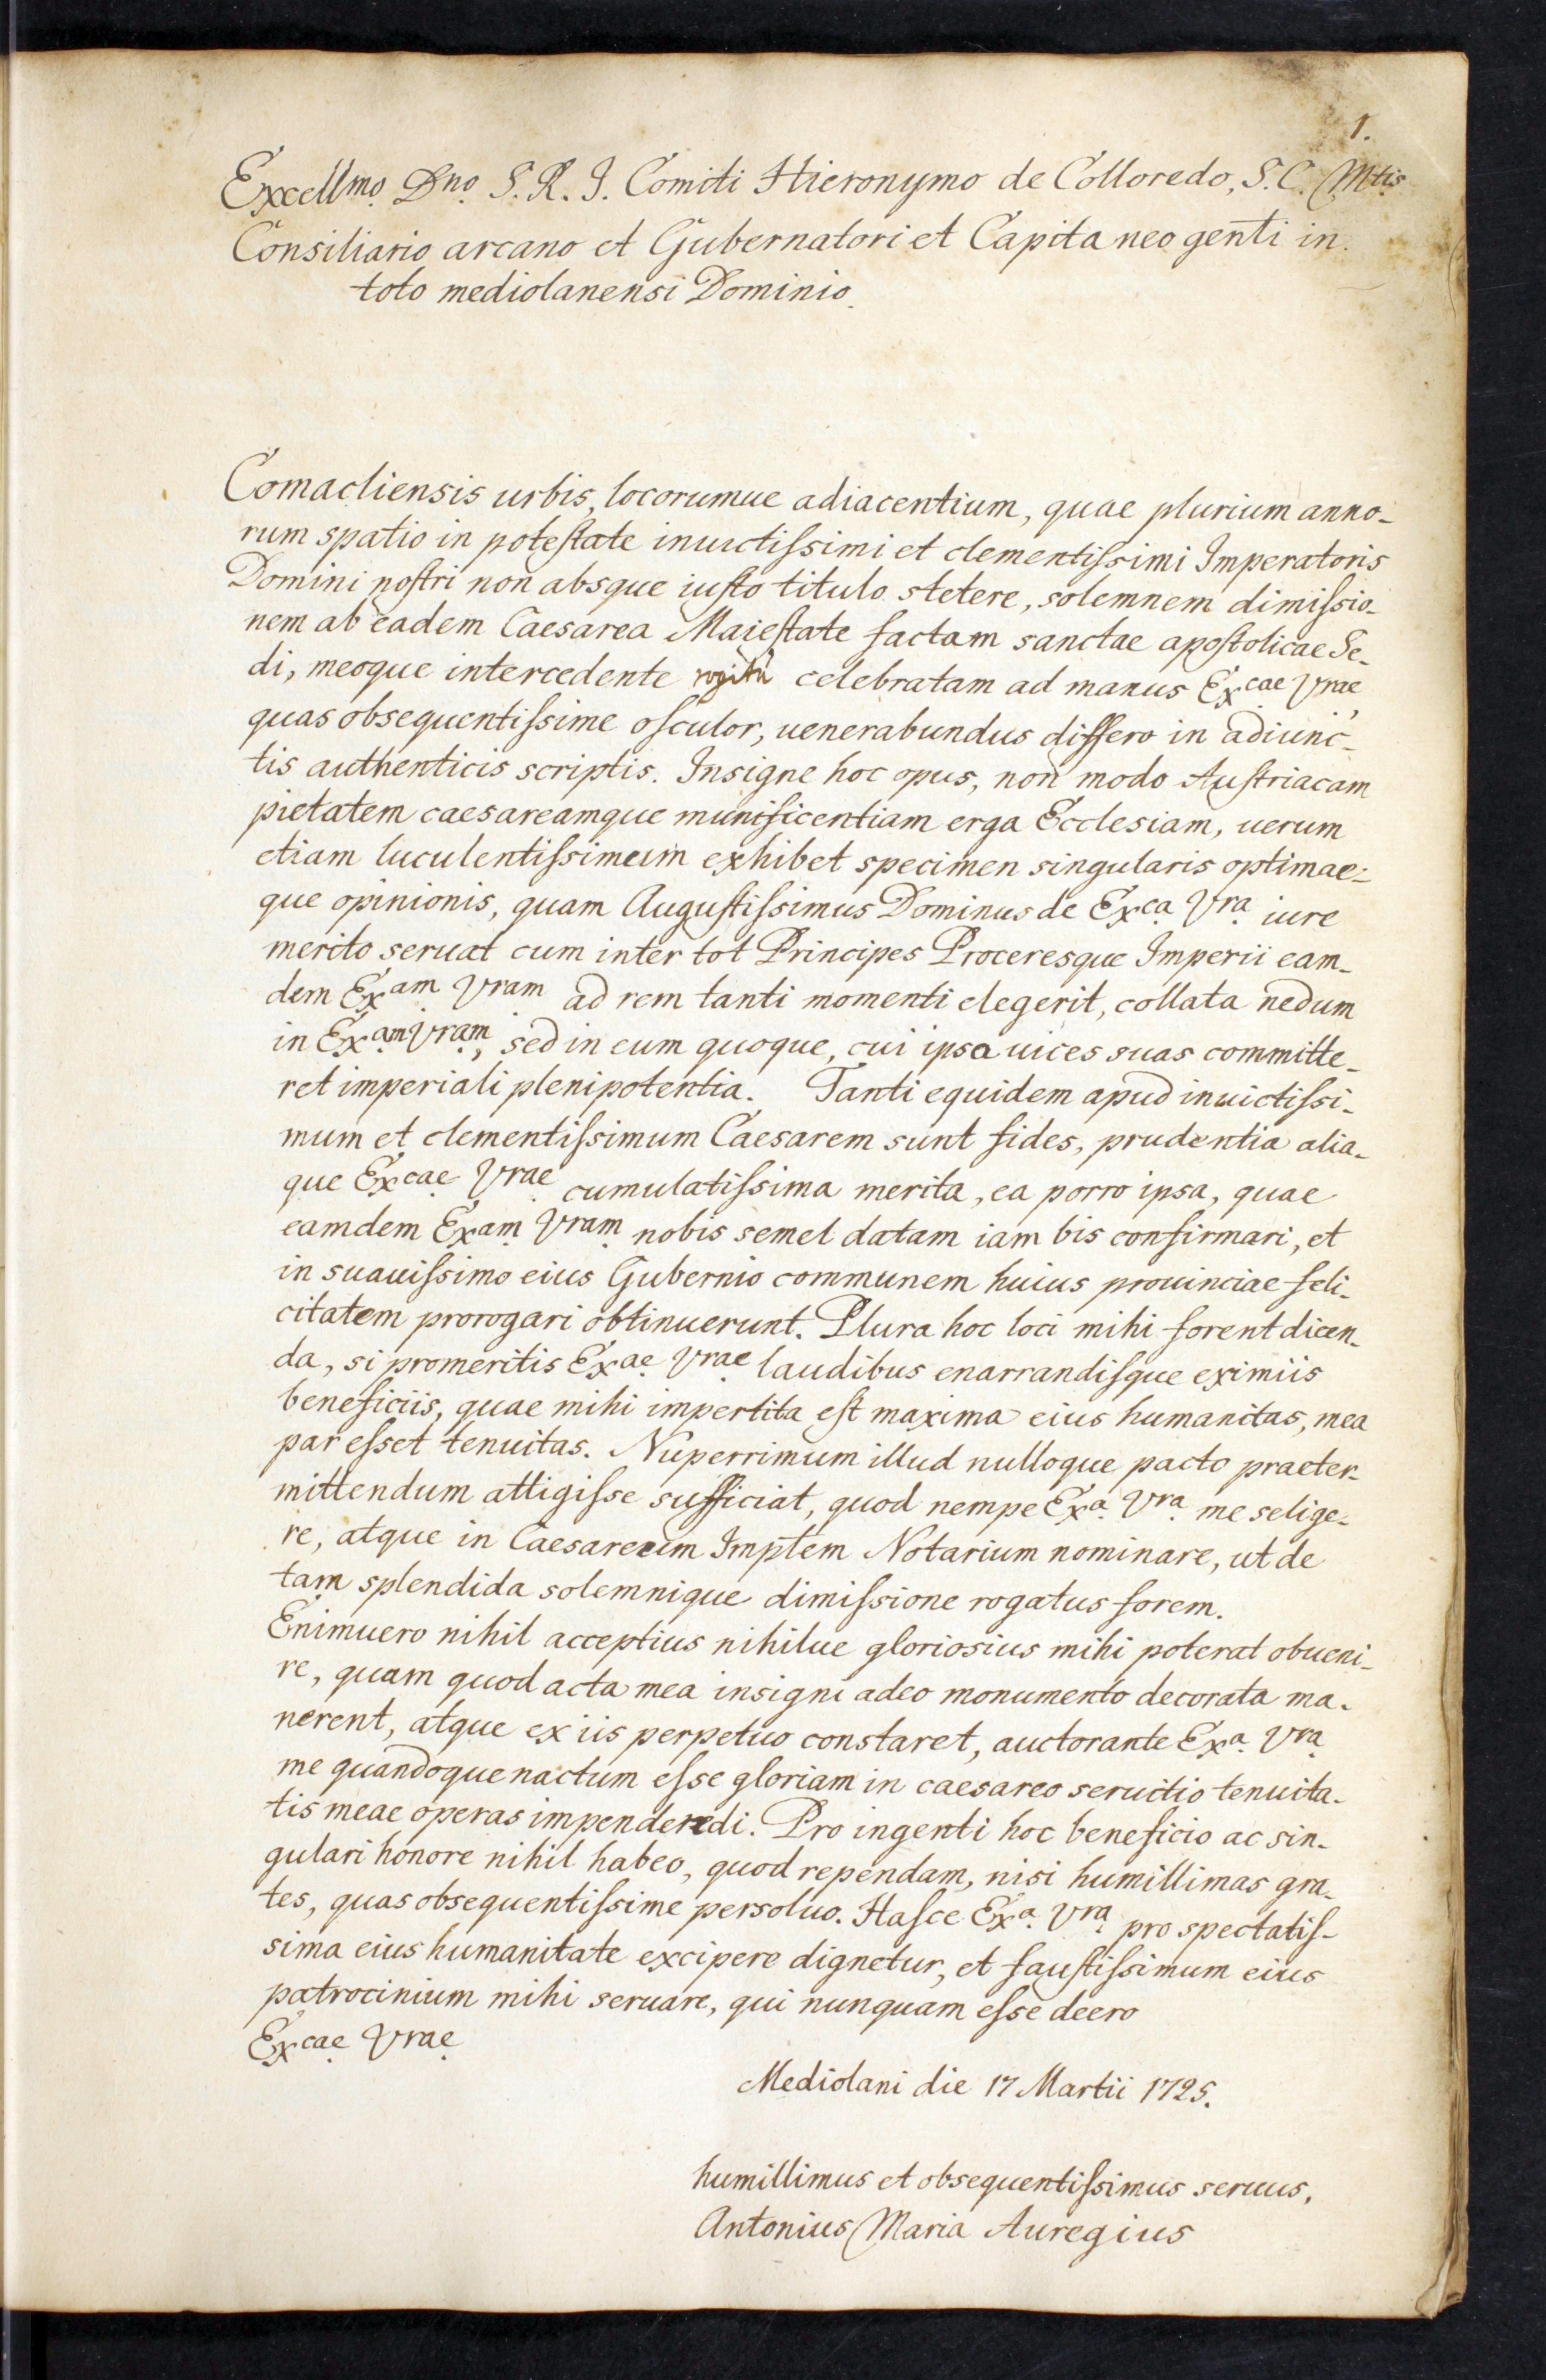 1.
Excellmo. Dno. S. R. I. Comiti Hieronymo de Colloredo, S. C. Mtis
Consiliario arcano et Gubernatori et Capitaneo genti in
toto mediolanensi Dominio.
Comacliensis urbis, locorumue adiacentium, quae plurium anno-
rum spatio in poteſtate inuictiſsimi et clementiſsimi Imperatoris
Domini noſtri non absque iuſto titulo stetere, solemnem dimiſsio-
nem ab eadem Caesarea Maieſtate factam sanctae apoſtolicae Se-
di, meoque intercedente rogitu celebratam ad manus Excae Vrae,
quas obsequentiſsime oſculor, uenerabundus differo in adiunc-
tis authenticis scriptis. Insigne hoc opus, non modo Auſtriacam
pietatem caesareamque munificentiam erga Ecclesiam, uerum
etiam luculentiſsimum exhibet specimen singularis optimae-
que opinionis, quam Auguſtiſsimus Dominus de Exca Vra iure
merito seruat cum inter tot Principes Proceresque Imperii eam-
dem Exam Vram ad rem tanti momenti elegerit, collata nedum
in Exam Vram, sed in eum quoque, cui ipsa uices suas committe-
ret imperiali plenipotentia. Tanti equidem apud inuictiſsi-
mum et clementiſsimum Caesarem sunt fides, prudentia alia-
que Excae Vrae cumulatiſsima merita, ea porro ipsa, quae
eamdem Exam Vram nobis semel datam iam bis confirmari, et
in suauiſsimo eius Gubernio communem huius prouinciae feli-
citatem prorogari obtinuerunt. Plura hoc loci mihi forent dicen-
da, si promeritis Exae Vrae laudibus enarrandiſque eximiis
beneficiis, quae mihi impertita eſt maxima eius humanitas, mea
par esset tenuitas. Nuperrimum illud nulloque pacto praeter-
mittendum attigiſse sufficiat, quod nempe Exa Vra me selige-
re, atque in Caesareum Imptem Notarium nominare, ut de
tam splendida solemnique dimiſsione rogatus forem.
Enimuero nihil acceptius nihilue gloriosius mihi poterat obueni-
re, quam quod acta mea insigni adeo monumento decorata ma-
nerent, atque ex iis perpetuo constaret, auctorante Exa Vra
me quandoque nactum eſse gloriam in caesareo seruitio tenuita-
tis meae operas impendendi. Pro ingenti hoc beneficio ac sin-
gulari honore nihil habeo, quod rependam, nisi humillimas gra-
tes, quas obsequentiſsime persoluo. Haſce Exa Vra pro spectatiſ-
sima eius humanitate excipere dignetur, et fauſtiſsimum eius
patrocinium mihi seruare, qui nunquam eſse deero
Excae Vrae
Mediolani die 17 Martii 1725.
humillimus et obsequentiſsimus seruus,
Antonius Maria Auregius